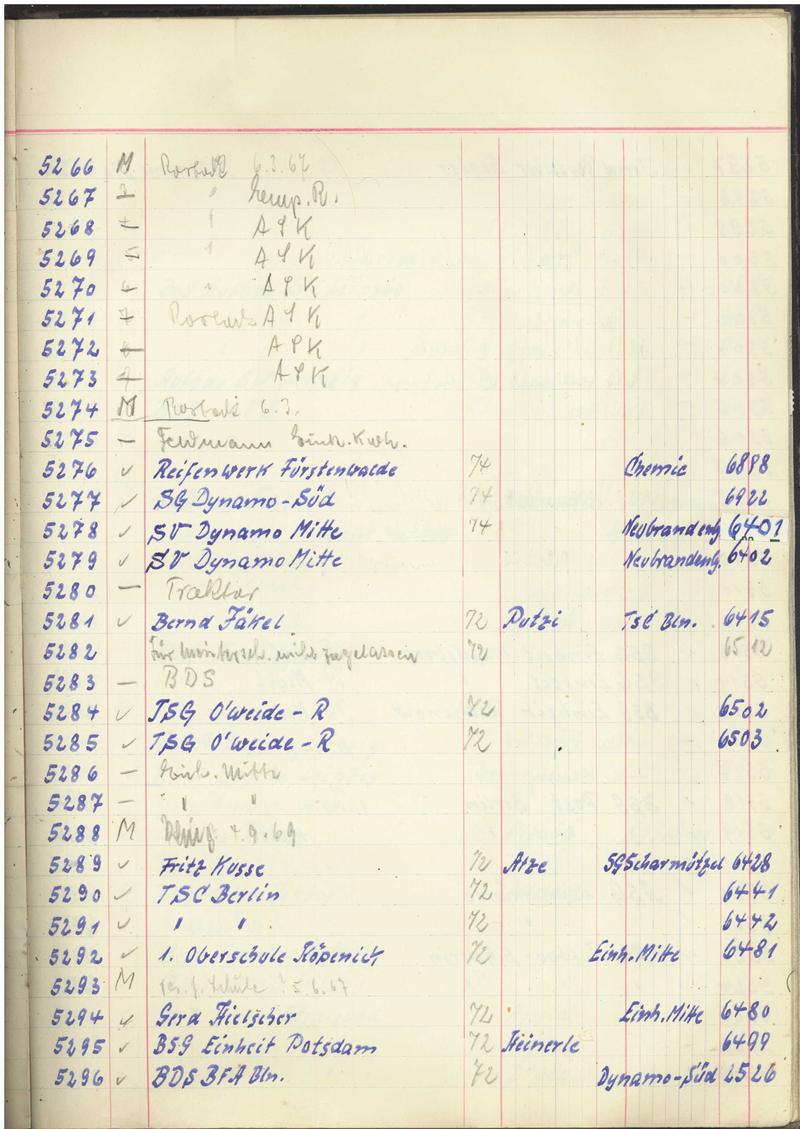 5266 M Rostock 6.3.67
5267 — "
5268 — " ASK
5269 — " ASK
5270 — " ASK
5271 — Rostock ASK
5272 — ASK
5273 — ASK
5274 M Rostock 6.3.
5275 — Feldmann
5276 ✓ Reifenwerk Fürstenwalde 74 Chemie 6898
5277 ✓ SG Dynamo-Süd 74 6922
5278 ✓ SV Dynamo Mitte 74 Neubrandenbg. 6401
5279 ✓ SV Dynamo Mitte Neubrandenbg. 6402
5280 — Traktor
5281 ✓ Bernd Jäkel 72 Putzi TSC Bln. 6415
5282 für nicht zugelassen 72 6512
5283 — BDS
5284 ✓ TSG O'weide-R 72 6502
5285 ✓ TSG O'weide-R 72 6503
5286 — Einh. Mitte
5287 — " "
5288 M 4.9.69
5289 ✓ Fritz Kusse 72 Atze SG Scharmützel 6428
5290 ✓ TSC Berlin 72 6441
5291 ✓ " " 72 6442
5292 ✓ 1. Oberschule Köpenick 72 Einh. Mitte 6481
5293 M Schule 5.6.67
5294 ✓ Gerd Hielscher 72 Einh. Mitte 6480
5295 ✓ BSG Einheit Potsdam 72 Heinerle 6499
5296 ✓ BDS BFA Bln. 72 Dynamo-Süd 2526